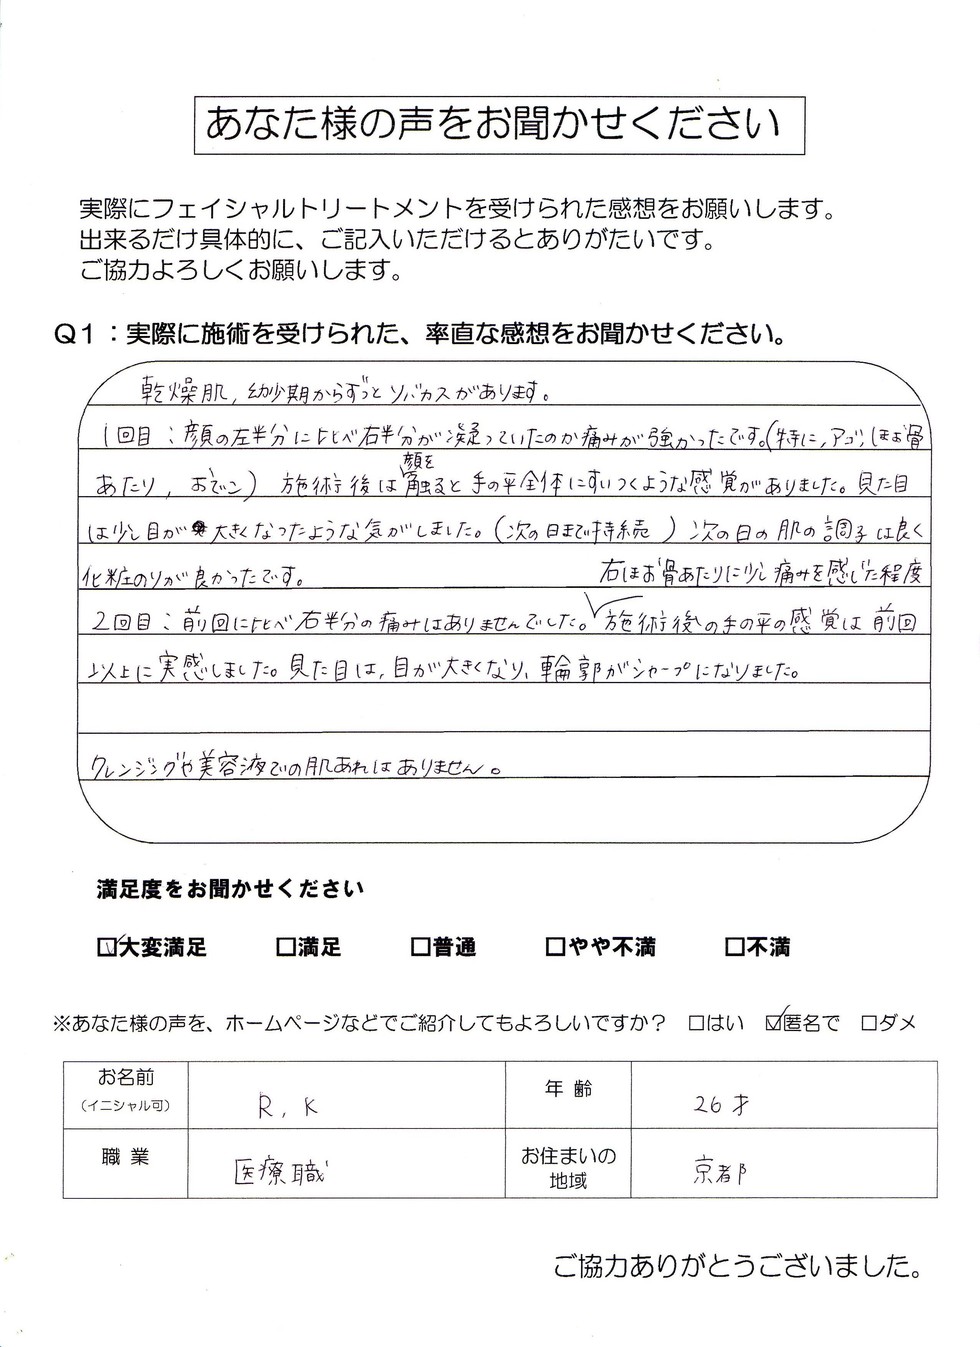 あなた様の声をお聞かせください
実際にフェイシャルトリートメントを受けられた感想をお願いします。
出来るだけ具体的に、ご記入いただけるとありがたいです。
ご協力よろしくお願いします。
Q1：実際に施術を受けられた、率直な感想をお聞かせください。
乾燥肌，幼少期からずっとソバカスがあります。
1回目：顔の左半分に比べ右半分が凝っていたのか痛みが強かったです。(特に，アゴ，ほお骨
あたり，おでこ) 施術後は顔を触ると手の平全体にすいつくような感覚がありました。見た目
は少し目が大きくなったような気がしました。(次の日まで持続) 次の日の肌の調子は良く
化粧のりが良かったです。
右ほお骨あたりに少し痛みを感じた程度
2回目：前回に比べ右半分の痛みはありませんでした。施術後の手の平の感覚は前回
以上に実感しました。見た目は，目が大きくなり，輪郭がシャープになりました。
クレンジングや美容液での肌あれはありません。
満足度をお聞かせください
☑大変満足 □満足 □普通 □やや不満 □不満
※あなた様の声を、ホームページなどでご紹介してもよろしいですか？ □はい ☑匿名で □ダメ
お名前 R，K 年齢 26才
（イニシャル可）
職業 医療職 お住まいの 京都
地域
ご協力ありがとうございました。